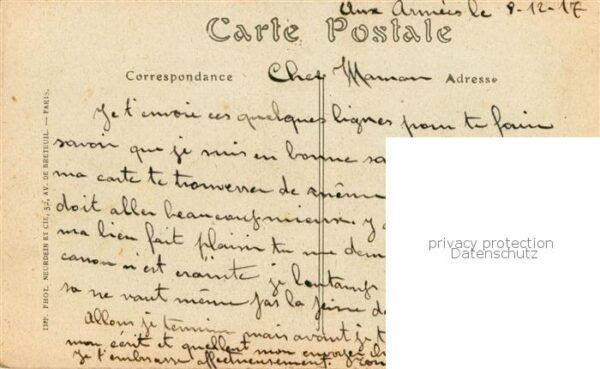 Aux Armées le 8-12-17
Carte Postale
Correspondance
Adresse
Cher Maman
Je t'envoie ces quelques lignes pour te faire
savoir que je suis en bonne
ma carte te trouvera de même
doit aller beaucoup mieux y
ma bien fait plaisir tu me
canon n'est crainte je
sa ne vaut même pas la peine de
Allons je termine mais avant je
mon écrit et
je t'embrasse affectueusement.
IMP. PHOT. NEURDEIN ET CIE, 52, AV. DE BRETEUIL. — PARIS.
privacy protection
Datenschutz